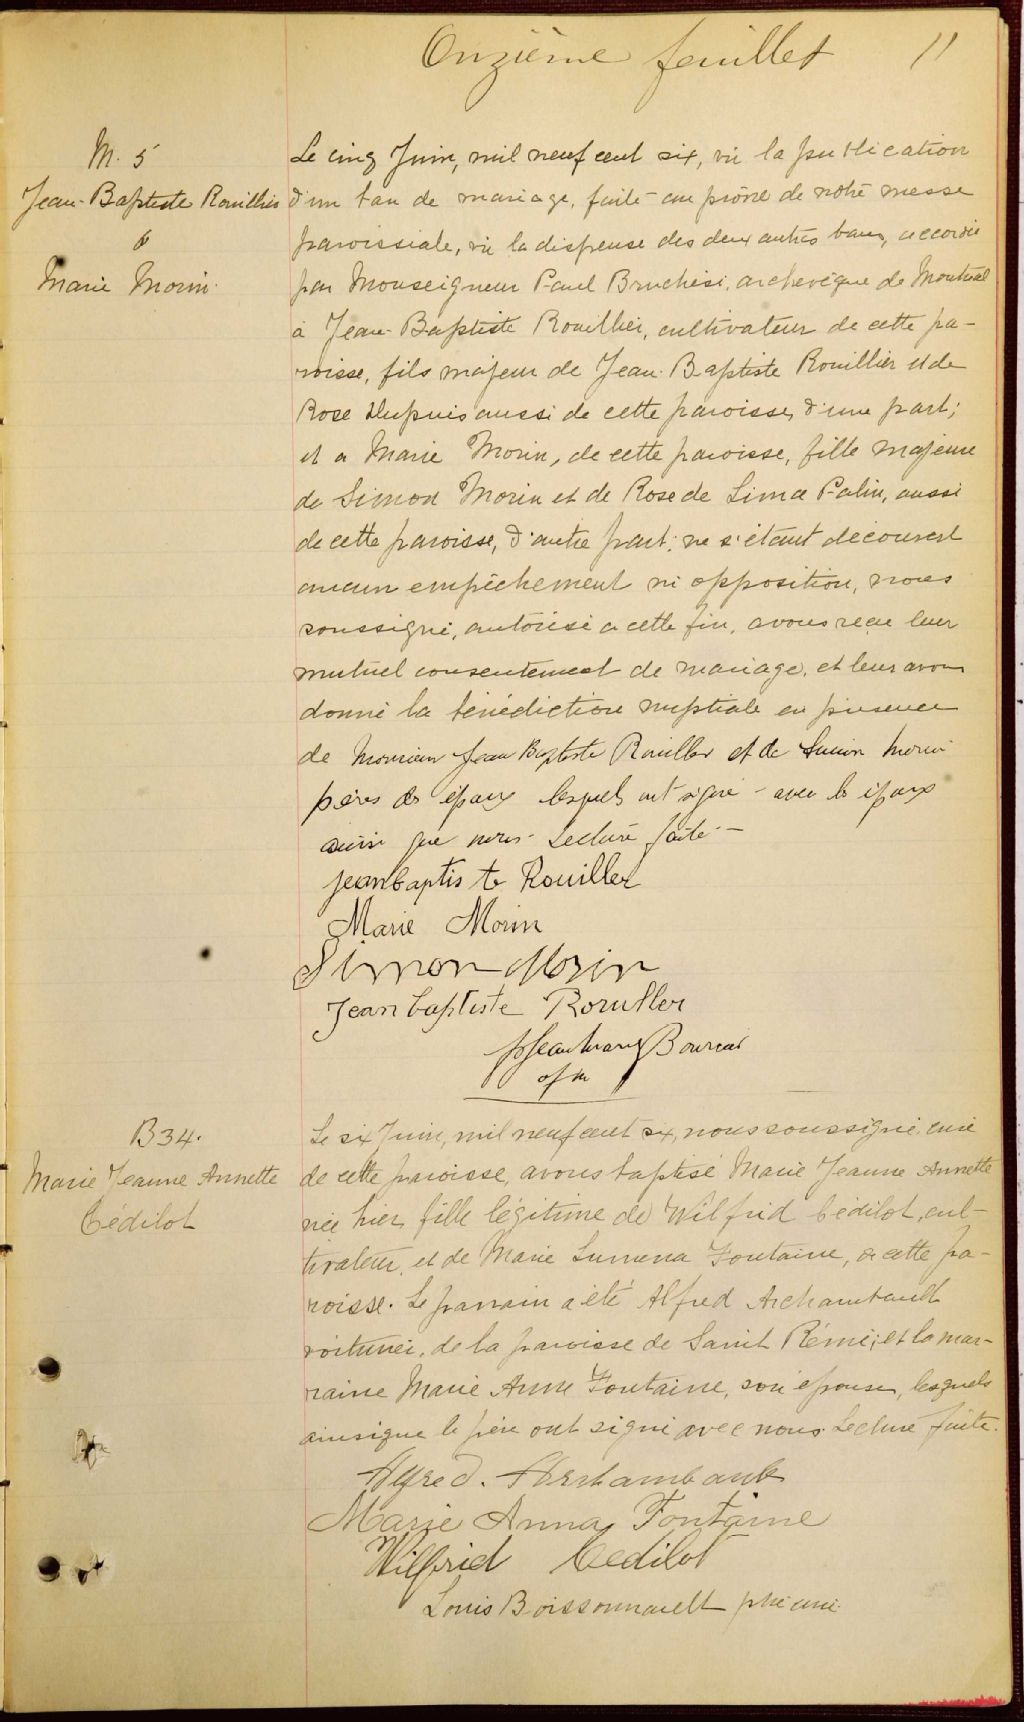 Onzième feuillet 11
M. 5
Jean-Baptiste Rouillier
&
Marie Morin.
Le cinq Juin, mil neuf cent six, vu la publication
d'un ban de mariage, faite au prône de notre messe
paroissiale, vu la dispense des deux autres bans, accordée
par Monseigneur Paul Bruchési, archevêque de Montréal
à Jean-Baptiste Rouillier, cultivateur de cette pa-
roisse, fils majeur de Jean-Baptiste Rouillier et de
Rose Dupuis aussi de cette paroisse, d'une part;
et a Marie Morin, de cette paroisse, fille majeure
de Simon Morin et de Rose de Lima Palin, aussi
de cette paroisse, d'autre part; ne s'étant découvert
aucun empêchement ni opposition, nous
soussigné, autorisé a cette fin, avons reçu leur
mutuel consentement de mariage, et leur avons
donné la bénédiction nuptiale en présence
de Monsieur Jean Baptiste Rouiller et de Simon Morin
pères des époux lesquels ont signé - avec les époux
ainsi que nous. Lecture faite. -
jeanbaptiste Rouiller
Marie Morin
Simon Morin
Jean baptiste Rouiller
ofm
B 34.
Marie Jeanne Annette
Cédilot
Le six Juin, mil neuf cent six, nous soussigné, curé
de cette paroisse, avons baptisé Marie Jeanne Annette
née hier, fille légitime de Wilfrid Cédilot, cul-
tivateur, et de Marie Lumena Fontaine, de cette pa-
roisse. Le parrain a été Alfred Archambault
voiturier, de la paroisse de Saint Rémi; et la mar-
raine Marie Anne Fontaine, son épouse, lesquels
ainsi que le père ont signé avec nous. Lecture faite.
Alfred. Archambault
Marie Anna Fontaine
Wilfrid Cedilot
Louis Boissonnault ptre curé